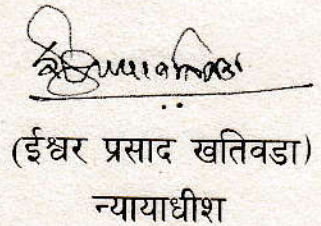 (ईश्वर प्रसाद खतिवडा)
न्यायाधीश